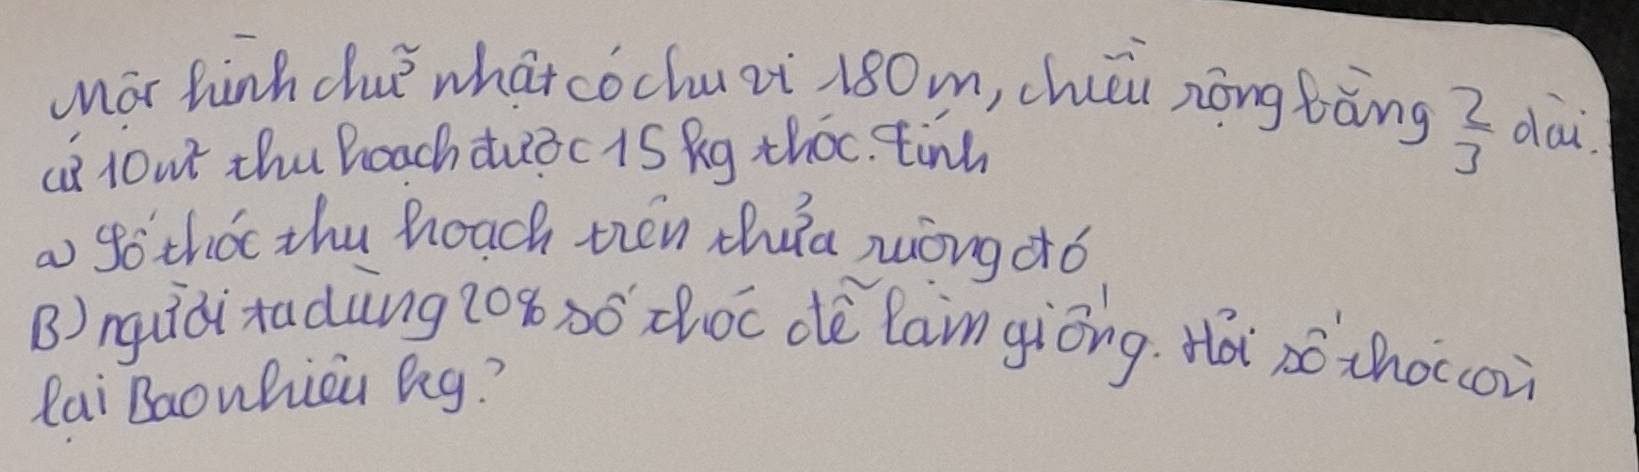 Một hình chữ nhật có chu vi 180m, chiều rộng bằng 2/3 dài.
cứ 10m² thu hoạch được 15 kg thóc. tính
a) Số thóc thu hoạch trên thửa ruộng đó
B) người ta dùng 20% số thóc để làm giống. Hỏi số thóc còn
lại Bao nhiêu kg?